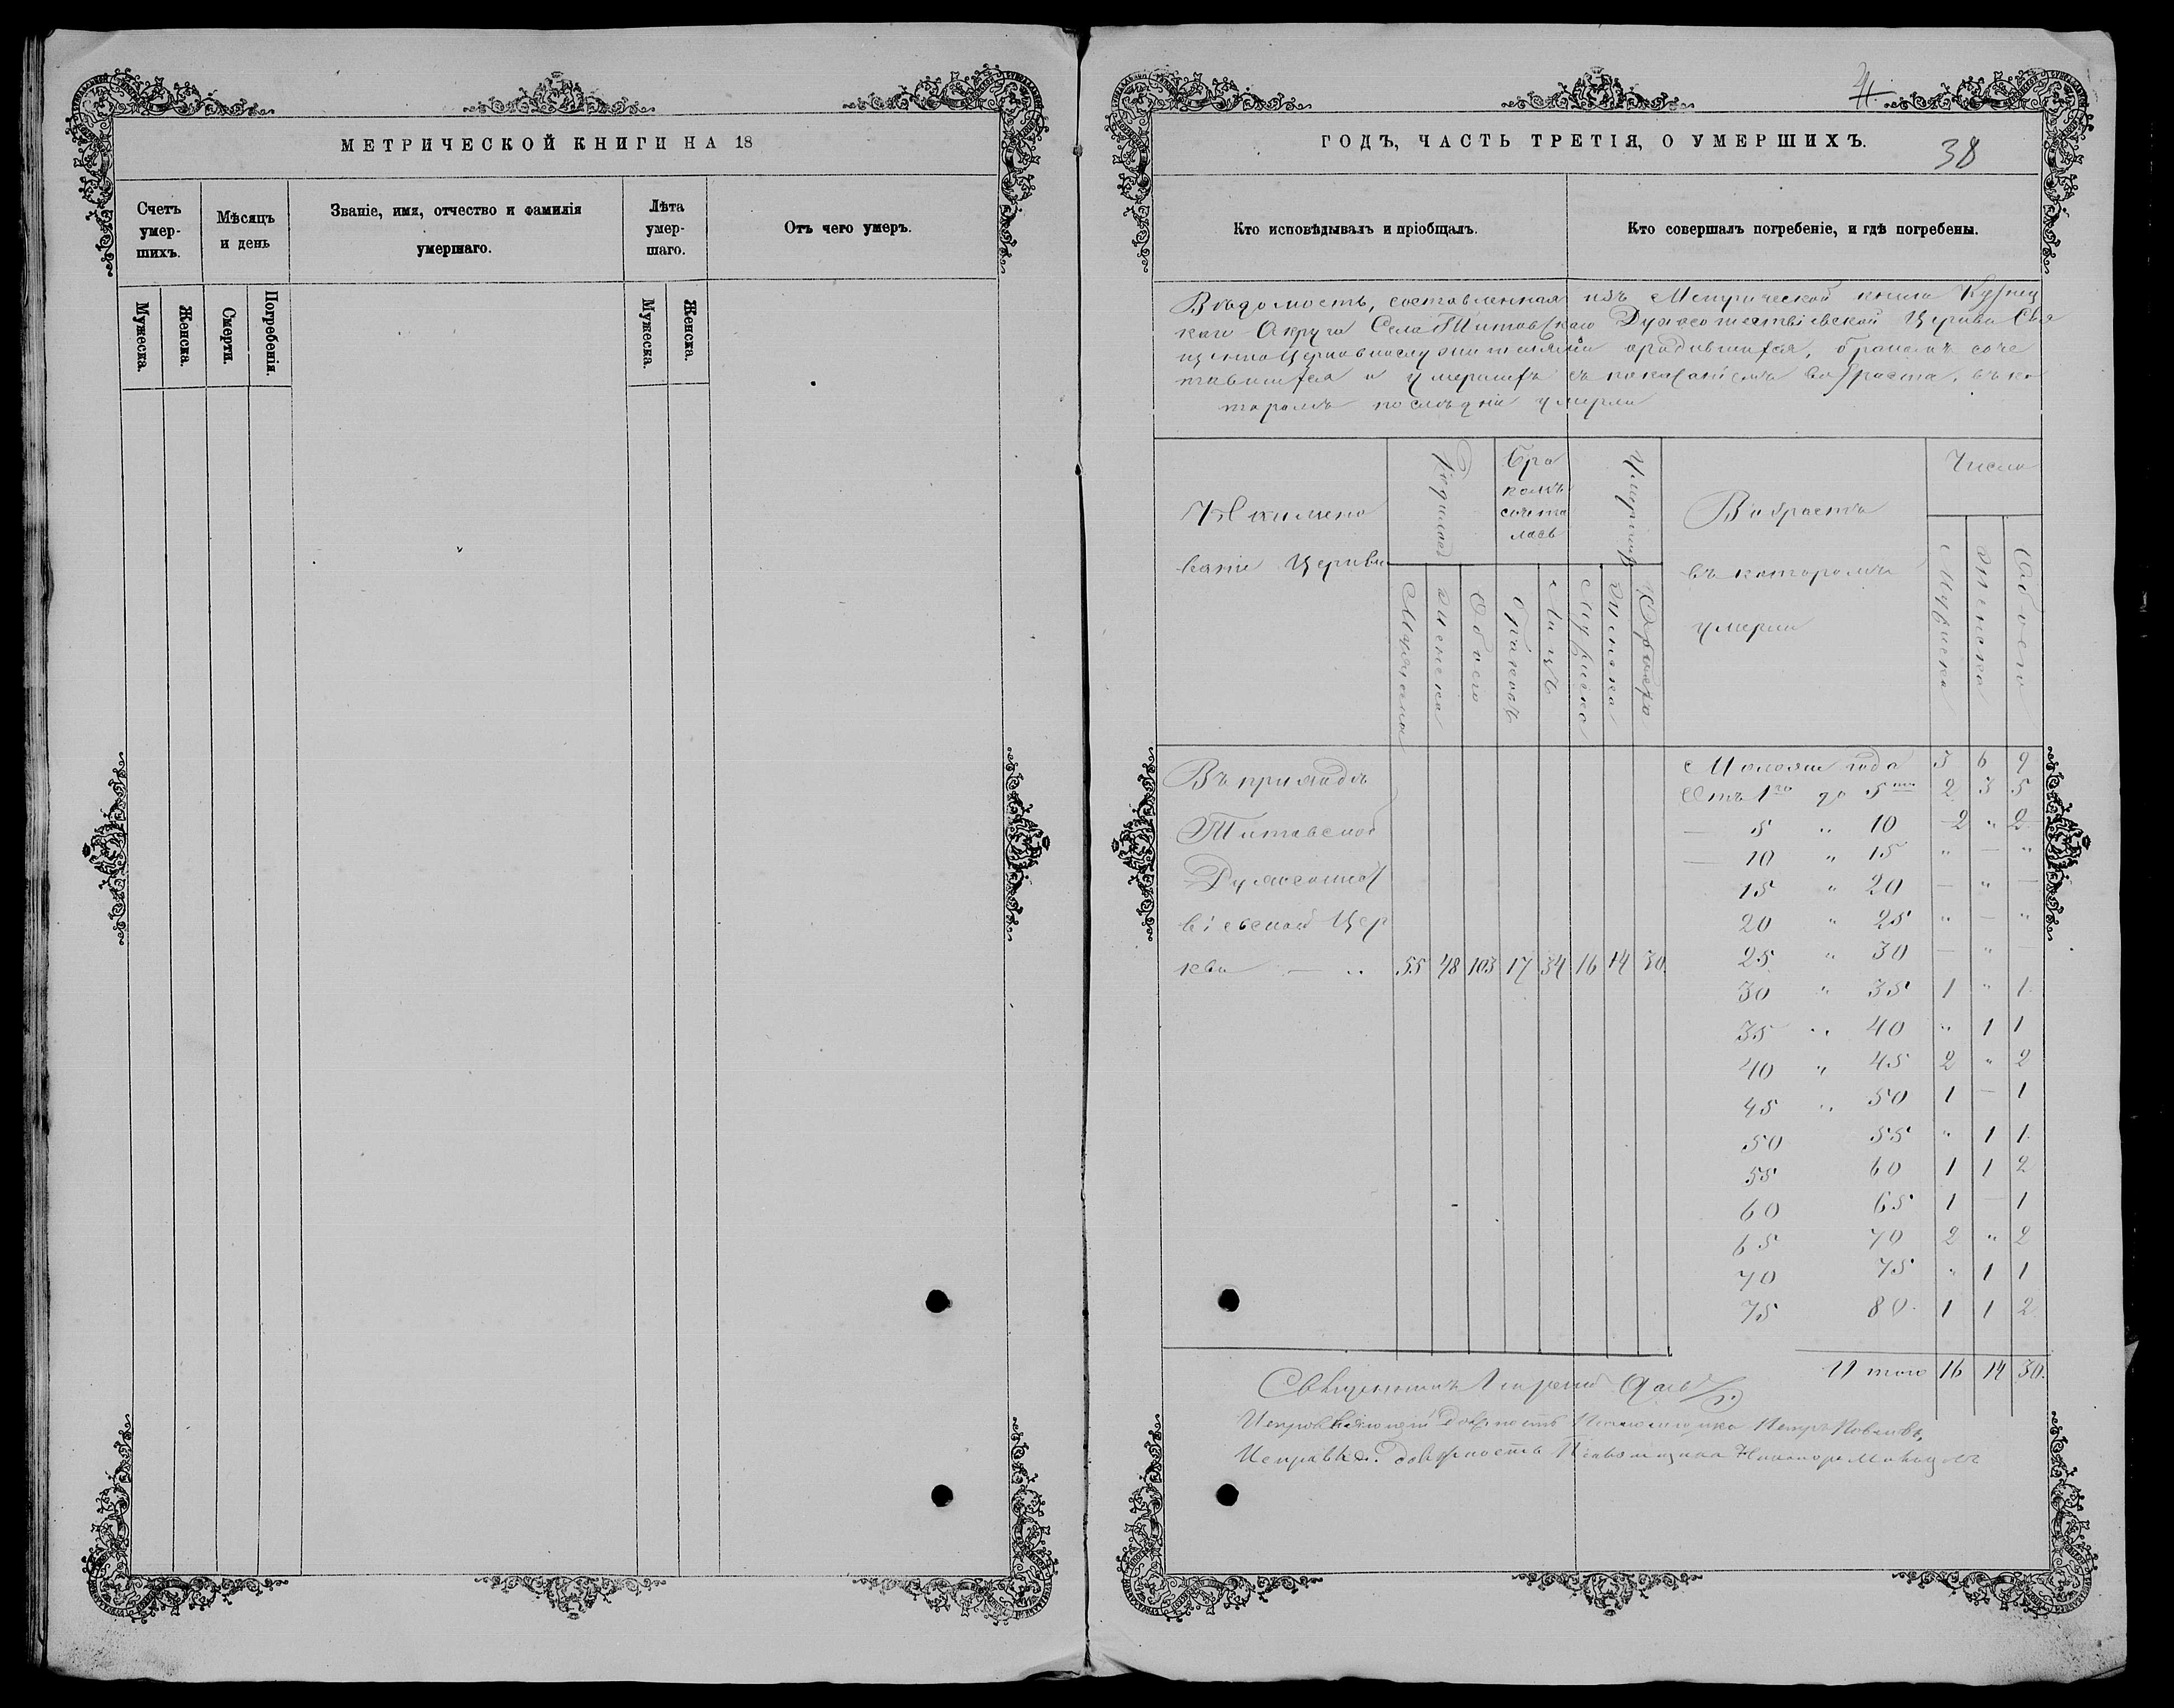 МЕТРИЧЕСКОЙ КНИГИ НА 18
Счетъ умер-шихъ.
Мѣсяцъ и день
Званіе, имя, отчество и фамилія умершаго.
Лѣта умер-шаго.
Отъ чего умеръ.
Мужеска.
Женска.
Смерти.
Погребенія.
Мужеска.
Женска.
ГОДЪ, ЧАСТЬ ТРЕТІЯ, О УМЕРШИХЪ.
38
Кто исповѣдывалъ и пріобщалъ.
Кто совершалъ погребеніе, и гдѣ погребены.
Вѣдомость, составленная изъ Метрической книги Кузнец
каго Округа Села Титовскаго Духосошествіевской Церкви Свя
щенноцерковнослужителями о родившихся, бракомъ соче
тавшихся и умершихъ съ показаніемъ возраста, въ ко
торомъ послѣдніе умерли
Наимено
ваніе Церкви
Родилось
Бра
комъ
сочета
лось
Умершихъ
Возрастъ
въ которомъ
умерли
Число
Мужеска
Женска
Обоего
Браковъ
Лицъ
Мужеска
Женска
Обоего
Мужеска
Женска
Обоего
Въ приходѣ
Титовской
Духосошест
віевской Цер
кви — „ 55 48 103 17 34 16 14 30
Моложе года 3 6 9
Отъ 1го до 5ти 2 3 5
— 5 „ 10 2 „ 2
— 10 „ 15 „ — „
15 „ 20 — „ —
20 „ 25 „ — „
25 „ 30 — „ —
30 „ 35 1 „ 1
35 „ 40 „ 1 1
40 „ 45 2 „ 2
45 „ 50 1 — 1
50 55 „ 1 1
55 60 1 1 2
60 65 1 — 1
65 70 2 „ 2
70 75 „ 1 1
75 80 1 1 2
Итого 16 14 30.
Священникъ
Исправляющій должность Псаломщика Петръ
Исправ. должность Псаломщика Никаноръ